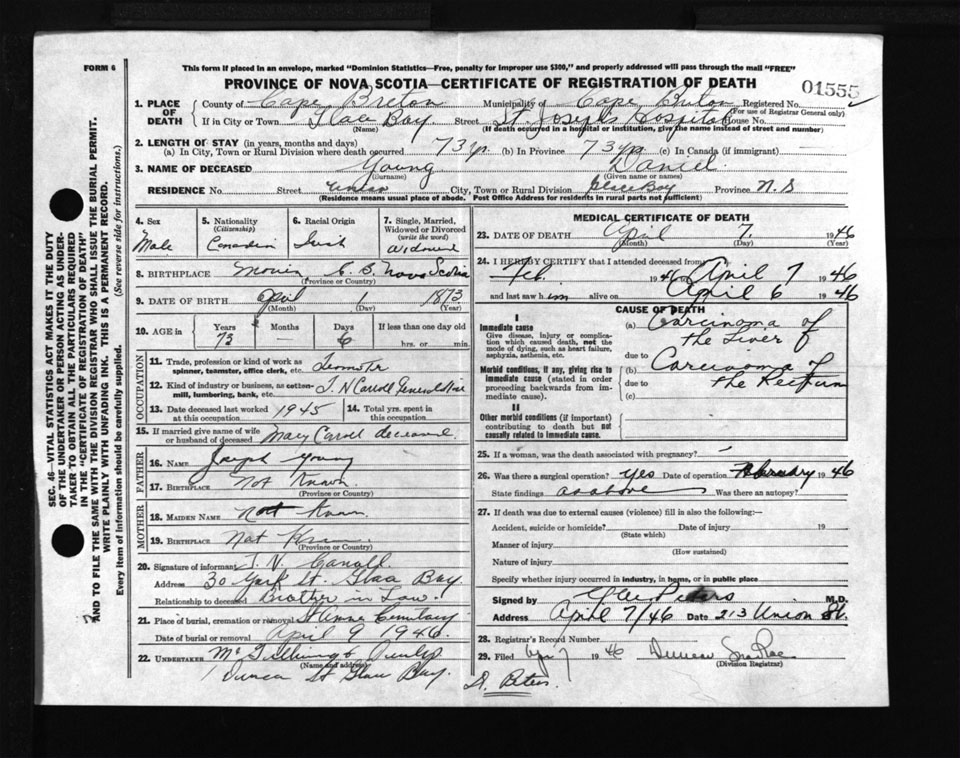 FORM 6
This form if placed in an envelope, marked "Dominion Statistics—Free, penalty for improper use $300," and properly addressed will pass through the mail "FREE"
PROVINCE OF NOVA SCOTIA—CERTIFICATE OF REGISTRATION OF DEATH
01555
1. PLACE OF DEATH
County of Cape Breton Municipality of Cape Breton Registered No.
(For use of Registrar General only)
If in City or Town Glace Bay Street St. Joseph's Hospital House No.
(Name) (If death occurred in a hospital or institution, give the name instead of street and number)
2. LENGTH OF STAY (in years, months and days)
(a) In City, Town or Rural Division where death occurred 73 yr. (b) In Province 73 yr. (c) In Canada (if immigrant)
3. NAME OF DECEASED Young Daniel
(Surname) (Given name or names)
RESIDENCE No. Street Union City, Town or Rural Division Glace Bay Province N. S
(Residence means usual place of abode. Post Office Address for residents in rural parts not sufficient)
4. Sex
Male
5. Nationality
(Citizenship)
Canadian
6. Racial Origin
Irish
7. Single, Married, Widowed or Divorced
(write the word)
Widowed
8. BIRTHPLACE C. B. Nova Scotia
(Province or Country)
9. DATE OF BIRTH April 1 1873
(Month) (Day) (Year)
10. AGE in
Years Months Days If less than one day old
73 6 hrs. or min.
OCCUPATION
11. Trade, profession or kind of work as spinner, teamster, office clerk, etc. Teamster
12. Kind of industry or business, as cotton-mill, lumbering, bank, etc. J. N Carroll General Store
13. Date deceased last worked at this occupation 1945
14. Total yrs. spent in this occupation
15. If married give name of wife or husband of deceased Mary Carroll deceased.
FATHER
16. NAME Joseph Young
17. BIRTHPLACE Not Known
(Province or Country)
MOTHER
18. MAIDEN NAME Not Known
19. BIRTHPLACE Not Known
(Province or Country)
20. Signature of informant J. N. Carroll
Address 30 York St. Glace Bay
Relationship to deceased Brother in Law.
21. Place of burial, cremation or removal St Anne Cemetary
Date of burial or removal April 9 1946.
22. UNDERTAKER Dunlop
(Name and address)
St Glace Bay.
MEDICAL CERTIFICATE OF DEATH
23. DATE OF DEATH April 7. 1946
(Month) (Day) (Year)
24. I HEREBY CERTIFY that I attended deceased from
Feb. 1946 to April 7 1946
and last saw him alive on April 6 1946
CAUSE OF DEATH
I
Immediate cause
Give disease, injury or complication which caused death, not the mode of dying, such as heart failure, asphyxia, asthenia, etc.
(a) Carcinoma of the Liver
due to
Morbid conditions, if any, giving rise to immediate cause (stated in order proceeding backwards from immediate cause).
(b) Carcinoma of the Rectum
due to
(c)
II
Other morbid conditions (if important) contributing to death but not causally related to immediate cause.
25. If a woman, was the death associated with pregnancy?
26. Was there a surgical operation? yes Date of operation February 1946
State findings as above Was there an autopsy?
27. If death was due to external causes (violence) fill in also the following:—
Accident, suicide or homicide? Date of injury 19
(State which)
Manner of injury
(How sustained)
Nature of injury
Specify whether injury occurred in industry, in home, or in public place
Signed by Peters M.D.
Address April 7/46 Date 213 Union St.
28. Registrar's Record Number
29. Filed Apr 7 1946 Duncan
(Division Registrar)
D. Peters
SEC. 46—VITAL STATISTICS ACT MAKES IT THE DUTY OF THE UNDERTAKER OR PERSON ACTING AS UNDERTAKER TO OBTAIN ALL THE PARTICULARS REQUIRED IN THE "CERTIFICATE OF REGISTRATION OF DEATH" AND TO FILE THE SAME WITH THE DIVISION REGISTRAR WHO SHALL ISSUE THE BURIAL PERMIT.
WRITE PLAINLY WITH UNFADING INK. THIS IS A PERMANENT RECORD.
Every item of information should be carefully supplied. (See reverse side for instructions.)